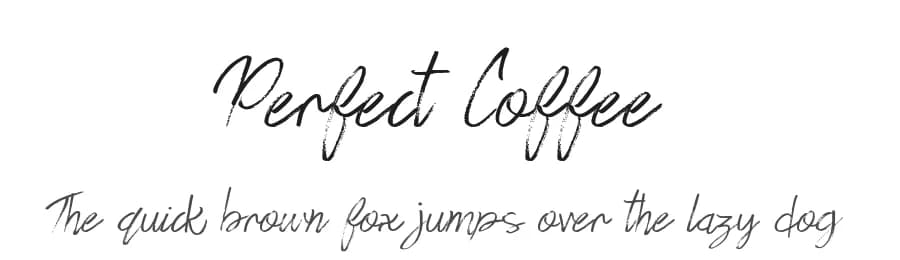 Perfect Coffee
The quick brown fox jumps over the lazy dog